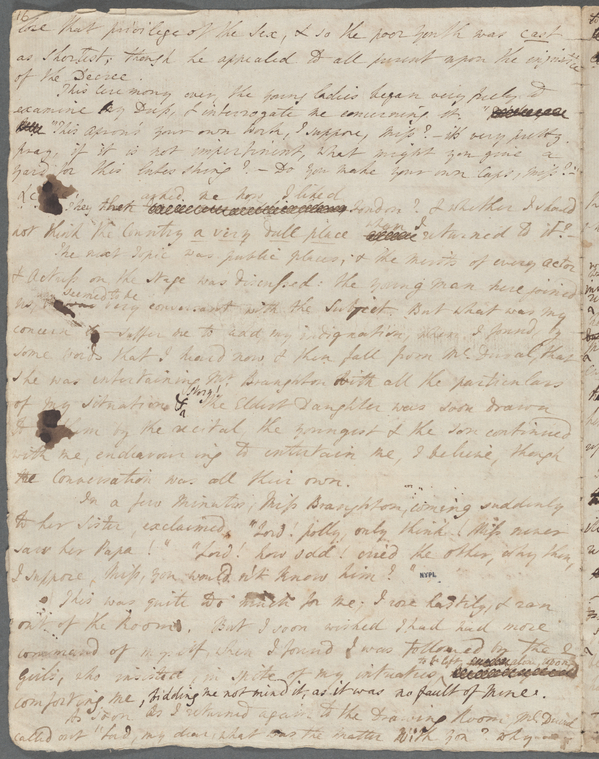 16
lose that privilege of the Sex, & so the poor youth was cast
as shortest; though he appealed to all present upon the injustice
of the Decree.
This Ceremony over, the young ladies began very freely to
examine my Dress, & interrogate me concerning it, "
"This apron's your own work, I suppose, Miss? – it's very pretty.
pray, if it is not impertinent, what might you give a
yard for this Lutestring? – Do you make your own Caps, Miss? –
They asked me how I liked
London? & whether I should
not think the Country a very dull place when I returned to it? –
The next topic was public places; & the merits of every actor
& Actress on the Stage was discussed: the young man here joined
us, & seemed to be very conversant with the Subject. But what was my
concern & – suffer me to add my indignation, when I found by
some words that I heard now & then fall from Me Duval, that
she was entertaining Mr. Branghton with all the particulars
of my situation & story! The Eldest Daughter was soon drawn
to them by the recital the youngest & the son continued
with me, endeavouring to entertain me, I believe, though
the Conversation was all their own.
In a few minutes, Miss Branghton, coming suddenly
to her Sister, exclaimed, "Lord! polly, only think! Miss never
saw her Papa!" "Lord! how odd! cried the other, why then,
I suppose, Miss, you wouldn't know him?"
NYPL
This was quite too much for me; I rose hastily, & ran
out of the Room. But I soon wished I had had more
command of myself, when I found I was followed by the 2
Girls, who insisted, in spite of my intreaties to be left alone, upon
comforting me, bidding me not mind it, as it was no fault of mine.
As soon as I returned again to the Drawing Room Me Duval
called out "Lord, my dear, what was the matter with you? why